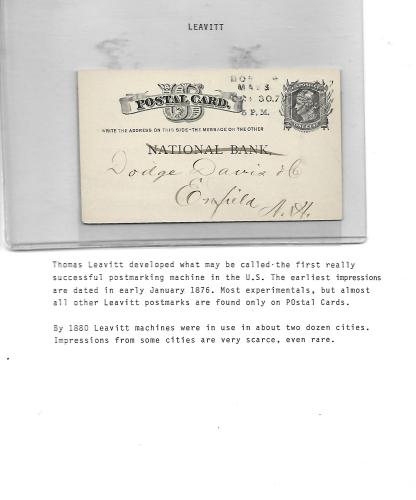 LEAVITT
POSTAL CARD.
WRITE THE ADDRESS ON THIS SIDE-THE MESSAGE ON THE OTHER
6 P.M.
NATIONAL BANK.
Dodge Davis & Co
Enfield
N.H.
Thomas Leavitt developed what may be called·the first really
successful postmarking machine in the U.S. The earliest impressions
are dated in early January 1876. Most experimentals, but almost
all other Leavitt postmarks are found only on POstal Cards.
By 1880 Leavitt machines were in use in about two dozen cities.
Impressions from some cities are very scarce, even rare.